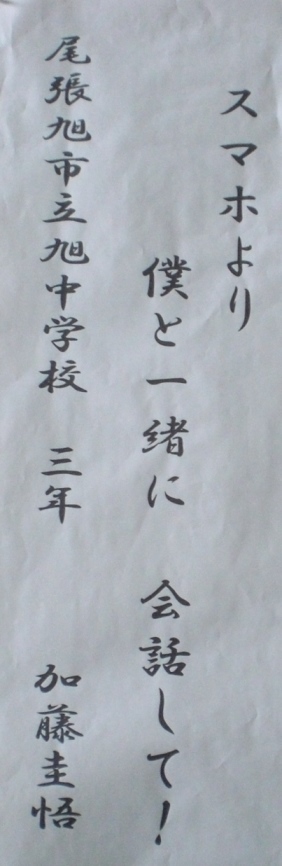 スマホより
僕と一緒に 会話して!
尾張旭市立旭中学校 三年 加藤圭悟